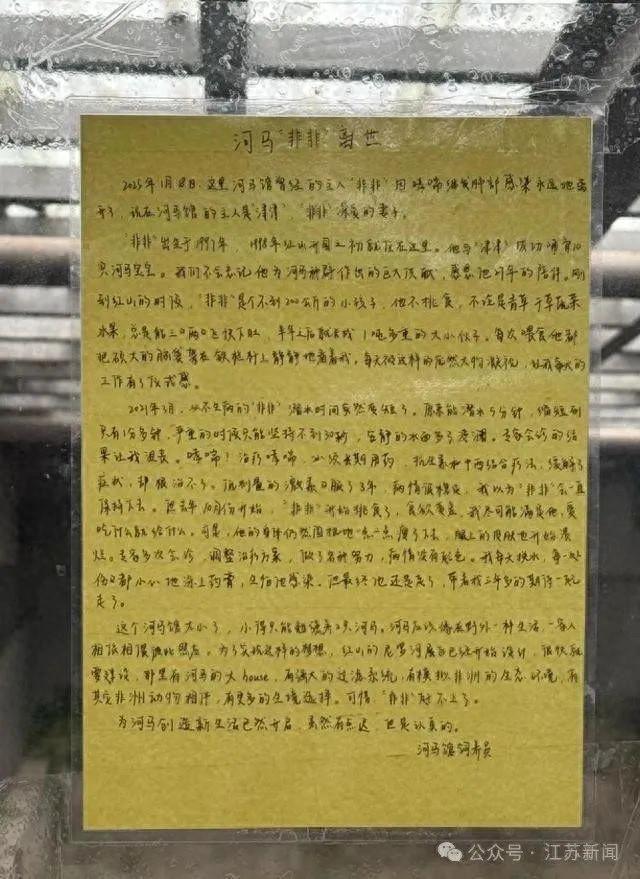 河马“非非”离世
2025年1月18日,这里河马馆曾经的主人“非非”因哮喘继发肺部感染永远地离
开了,现在河马馆的主人是“津津”,“非非”深爱的妻子。
“非非”出生于1997年,1998年红山开园之初就住在这里。他与“津津”成功哺育10
只河马宝宝。我们不会忘记他为河马种群作出的巨大贡献,感恩他27年的陪伴。刚
到红山的时候,“非非”是个不到200公斤的小孩子,他不挑食,不论是青草干草蔬菜
水果,总是能三口两口飞快下肚,半年之后就长成1吨多重的大小伙子。每次喂食他都
把硕大的脑袋靠在铁栏杆上静静地看着我,每天被这样的庞然大物凝视,让我每天的
工作有了仪式感。
2021年3月,从不生病的“非非”潜水时间突然变短了。原来能潜水5分钟,缩短到
只有1分多钟,严重的时候只能坚持不到30秒,安静的水面多了波澜。专家会诊的结
果让我沮丧。哮喘!治疗哮喘,必须长期用药,抗生素和中西结合疗法,缓解了
症状,却根治不了。低剂量的激素口服了3年,病情很稳定,我以为“非非”会一直
保持下去。但去年10月份开始,“非非”开始挑食了,食欲变差,我尽可能满足他,要
吃什么就给什么。可是,他的身体仍然固执地一点一点瘦了下去,腿上的皮肤也开始溃
烂。专家多次会诊,调整治疗方案,做了各种努力,病情没有起色。我每天换水,每一处
伤口都小心地涂上药膏,生怕他感染。但最终他还是走了,带着我三年多的期待一起
走了。
这个河马馆太小了,小得只能勉强养2只河马。河马应该像在野外一样生活,一家人
相依相偎彼此照应。为了实现这样的梦想,红山的尼罗河展区已经开始设计,很快就
要建设,那里有河马的大house,有强大的过滤系统,有模拟非洲的生态环境,有
其它非洲动物相伴,有更多的生境选择。可惜,“非非”赶不上了。
为河马创造新生活已然开启,虽然有点迟,但是认真的。
——河马馆饲养员
公众号·江苏新闻